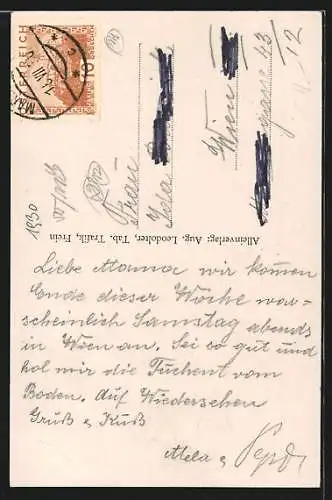 ÖSTERREICH
10
1930
Frau
Wien
43
12
Alleinverlag: Aug. Leodolter, Tab. Trafik, Frein
Liebe Mama wir kommen
Ende dieser Woche war-
scheinlich Samstag abends
in Wien an. Sei so gut und
hol mir die Tuchent vom
Boden. Auf Wiedersehen
Gruß & Kuß
Mela & Pepi